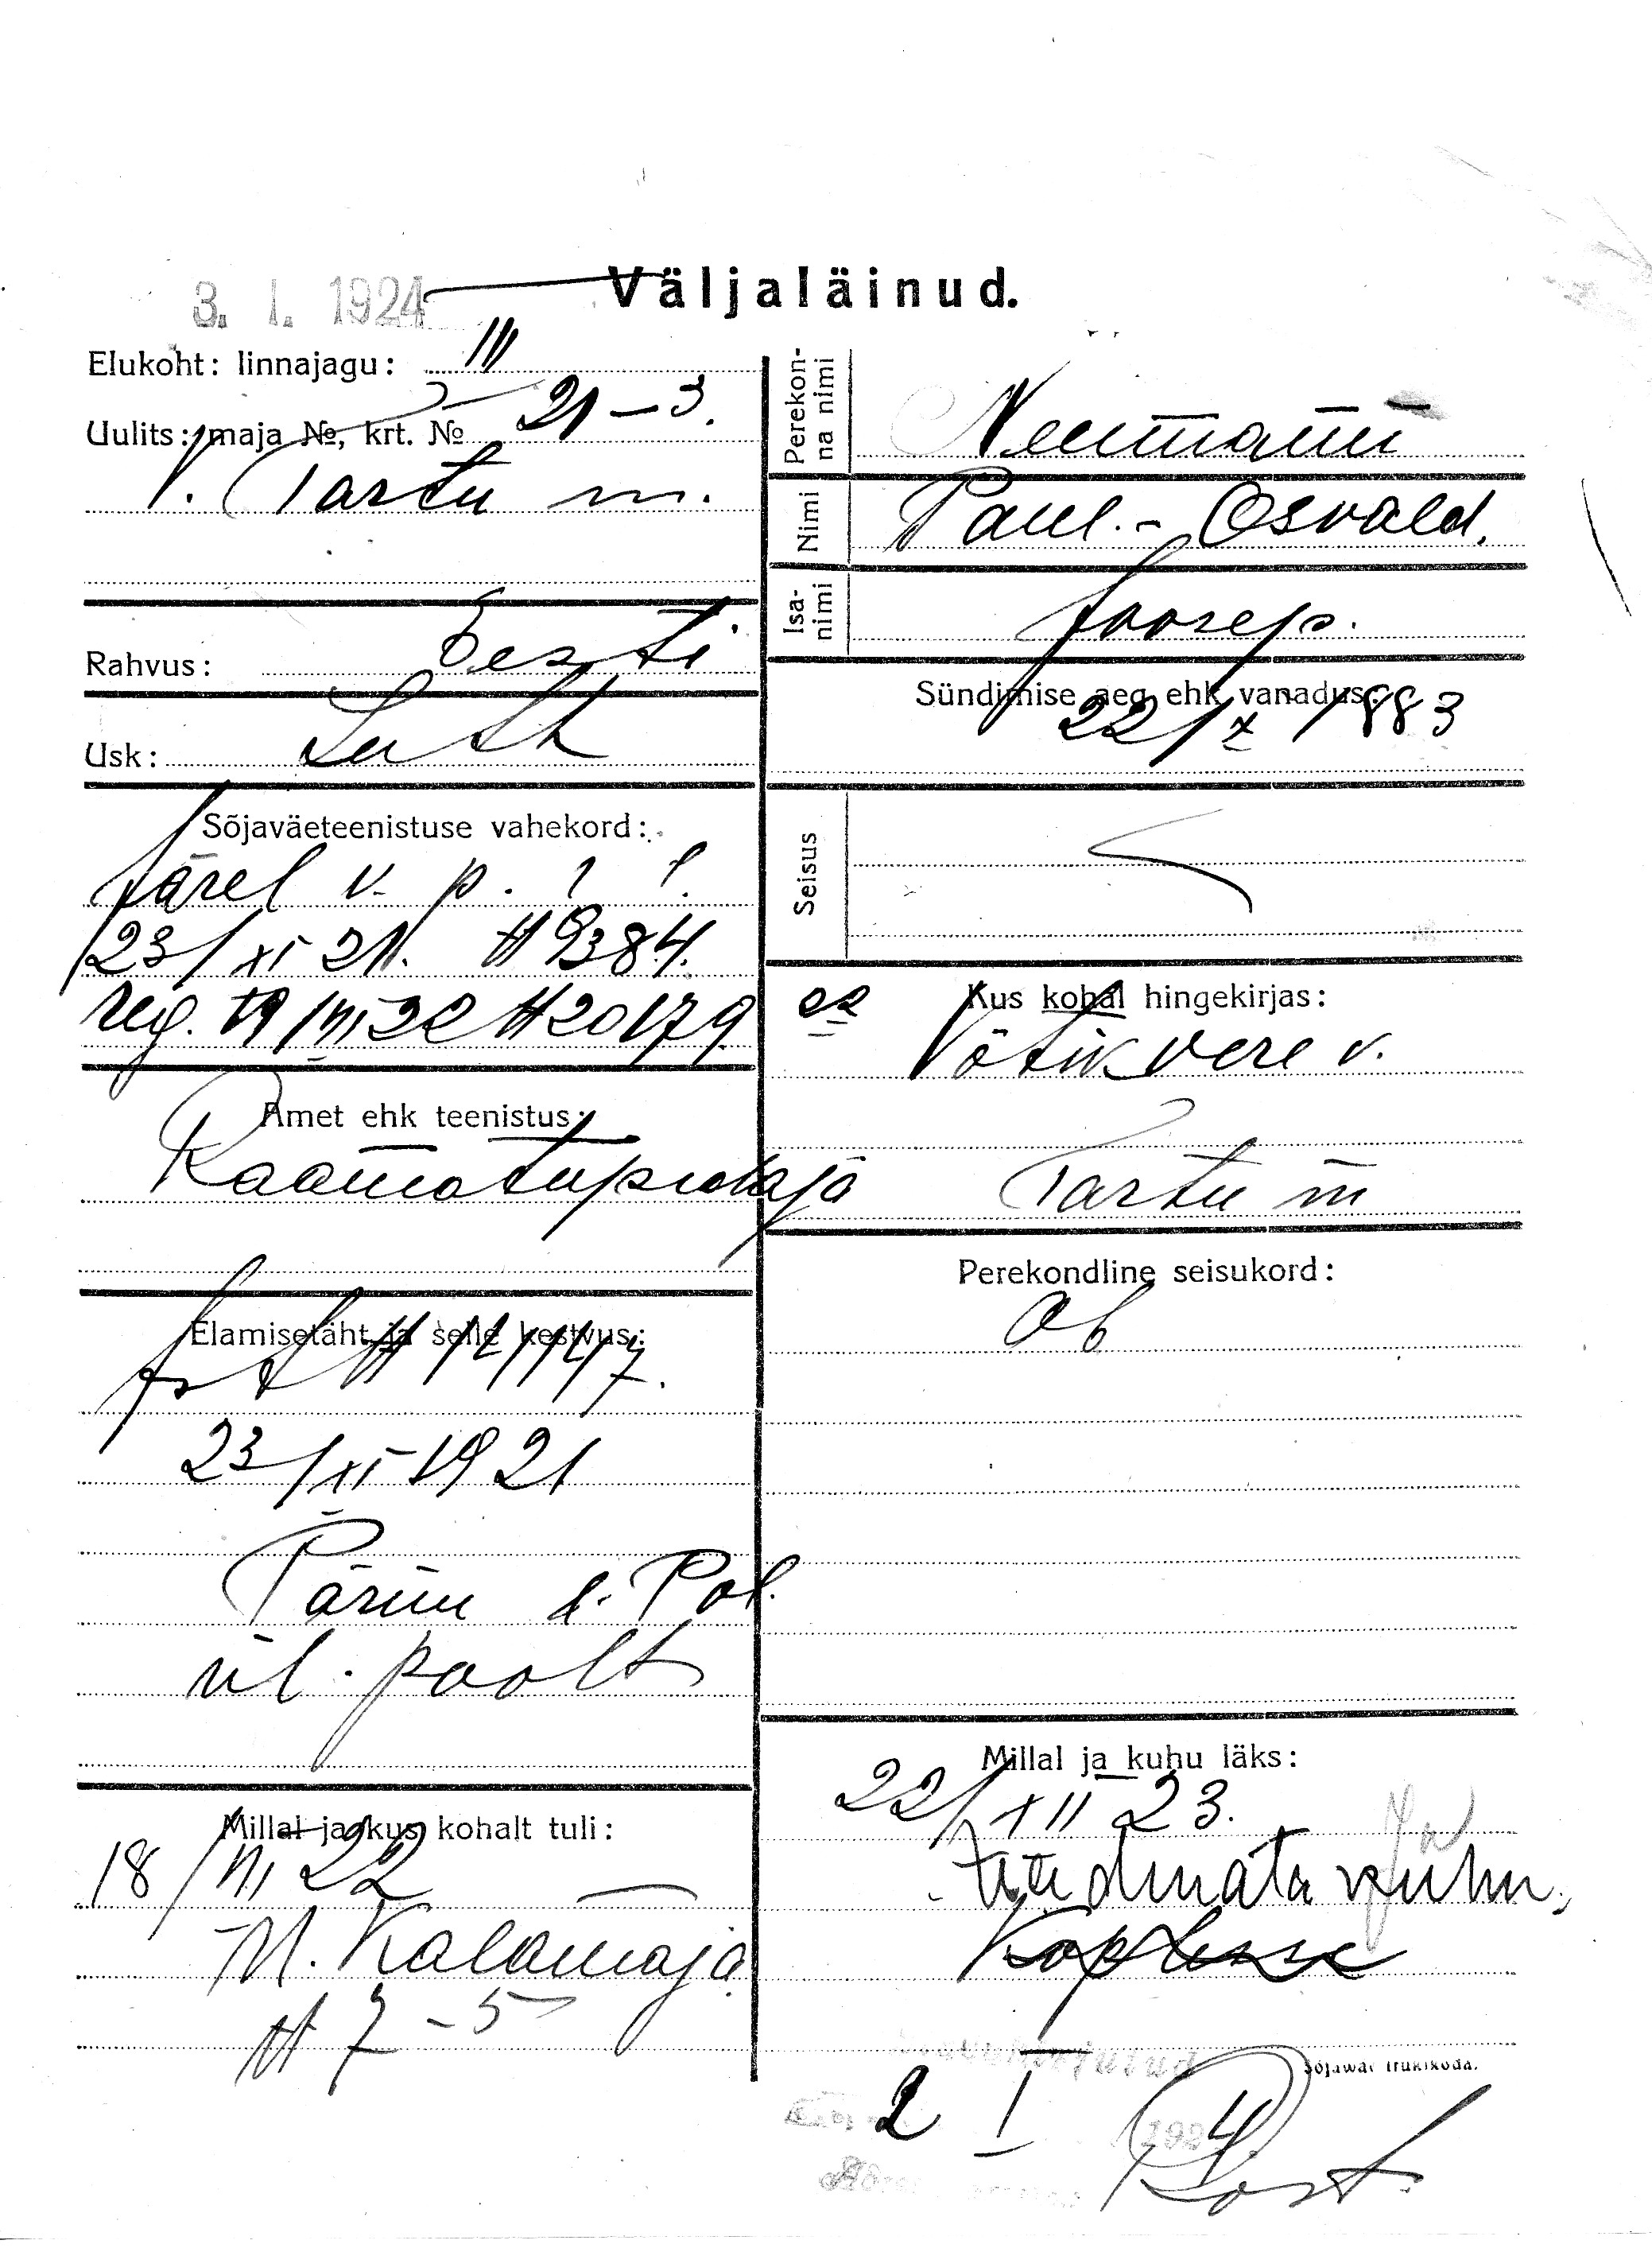 3. I. 1924
Väljaläinud.
Elukoht: linnajagu: III
Uulits: maja №, krt. № 21-3.
V. Tartu m.
Rahvus: Eesti
Usk: Luth
Sõjaväeteenistuse vahekord:
Järel v. p.
23/XI 21. № 9384.
reg. 19/VI 22 № 20179
Amet ehk teenistus:
Raamatupidaja
Elamiseläht ja selle kestvus:
№ 14147.
23/XI 1921
Pärnu l. Pol.
ül. poolt
Millal ja kus kohalt tuli:
18/VI 22
V. Kalamaja
№ 7-5
Perekonna nimi
Neumann
Nimi
Paul.-Osvald.
Isanimi
Joosep.
Sündimise aeg ehk vanadus:
22/X 1883
Seisus
Kus kohal hingekirjas:
Võtikvere v.
Tartu m
Perekondline seisukord:
ab
Millal ja kuhu läks:
22/XII 23.
teadmata kuhu,
Koplisse
Sõjawäe trükikoda.
2 I 1924